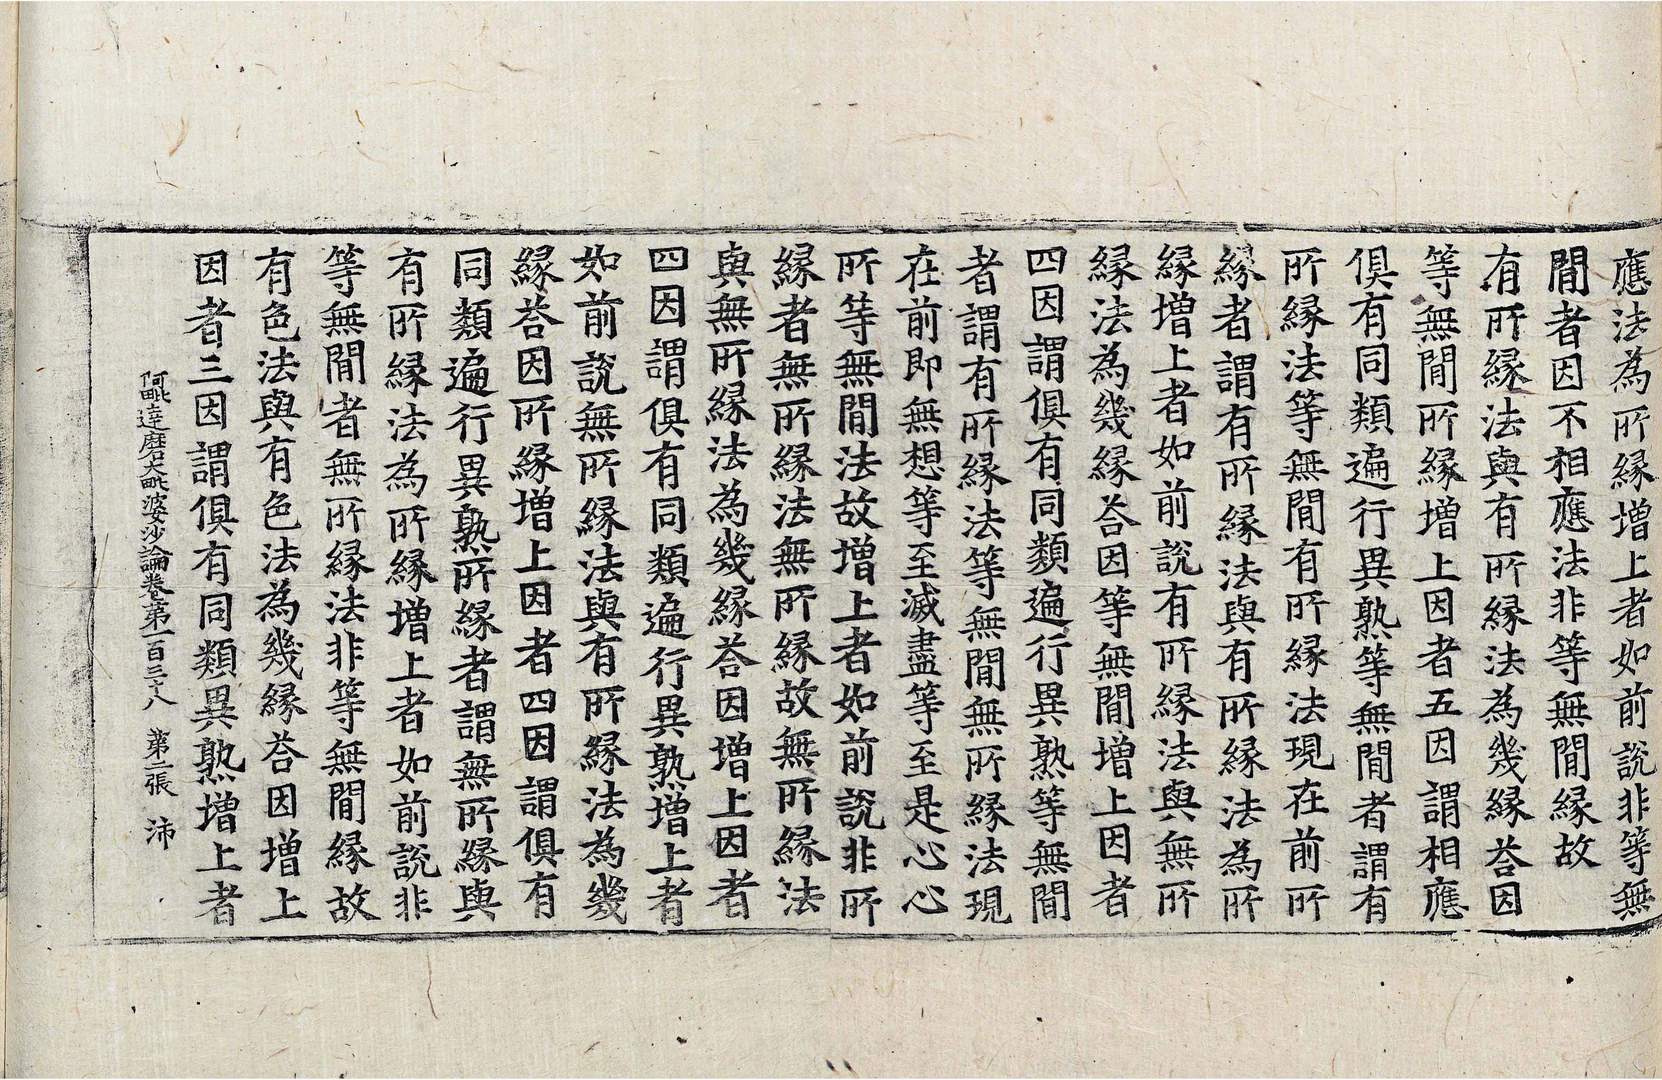 應法為所縁増上者如前說非等無
閒者因不相應法非等無閒縁故
有所縁法與有所縁法為幾縁荅因
等無閒所縁増上因者五因謂相應
俱有同類遍行異熟等無閒者謂有
所縁法等無閒有所縁法現在前所
縁者謂有所縁法與有所縁法為所
縁増上者如前說有所縁法與無所
縁法為幾縁荅因等無閒増上因者
四因謂俱有同類遍行異熟等無閒
者謂有所縁法等無閒無所縁法現
在前即無想等至滅盡等至是心心
所等無閒法故増上者如前說非所
縁者無所縁法無所縁故無所縁法
與無所縁法為幾縁荅因増上因者
四因謂俱有同類遍行異熟増上者
如前說無所縁法與有所縁法為幾
縁荅因所縁増上因者四因謂俱有
同類遍行異熟所縁者謂無所縁與
有所縁法為所縁増上者如前說非
等無閒者無所縁法非等無閒縁故
有色法與有色法為幾縁荅因増上
因者三因謂俱有同類異熟増上者
阿毗達磨大毗婆沙論卷第一百三十八　第二張　沛